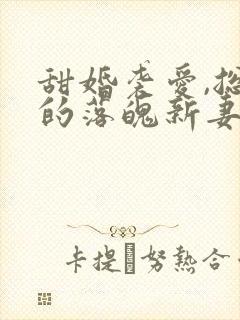 甜婚袭爱,总
的落魄新妻
卡提·努熱合